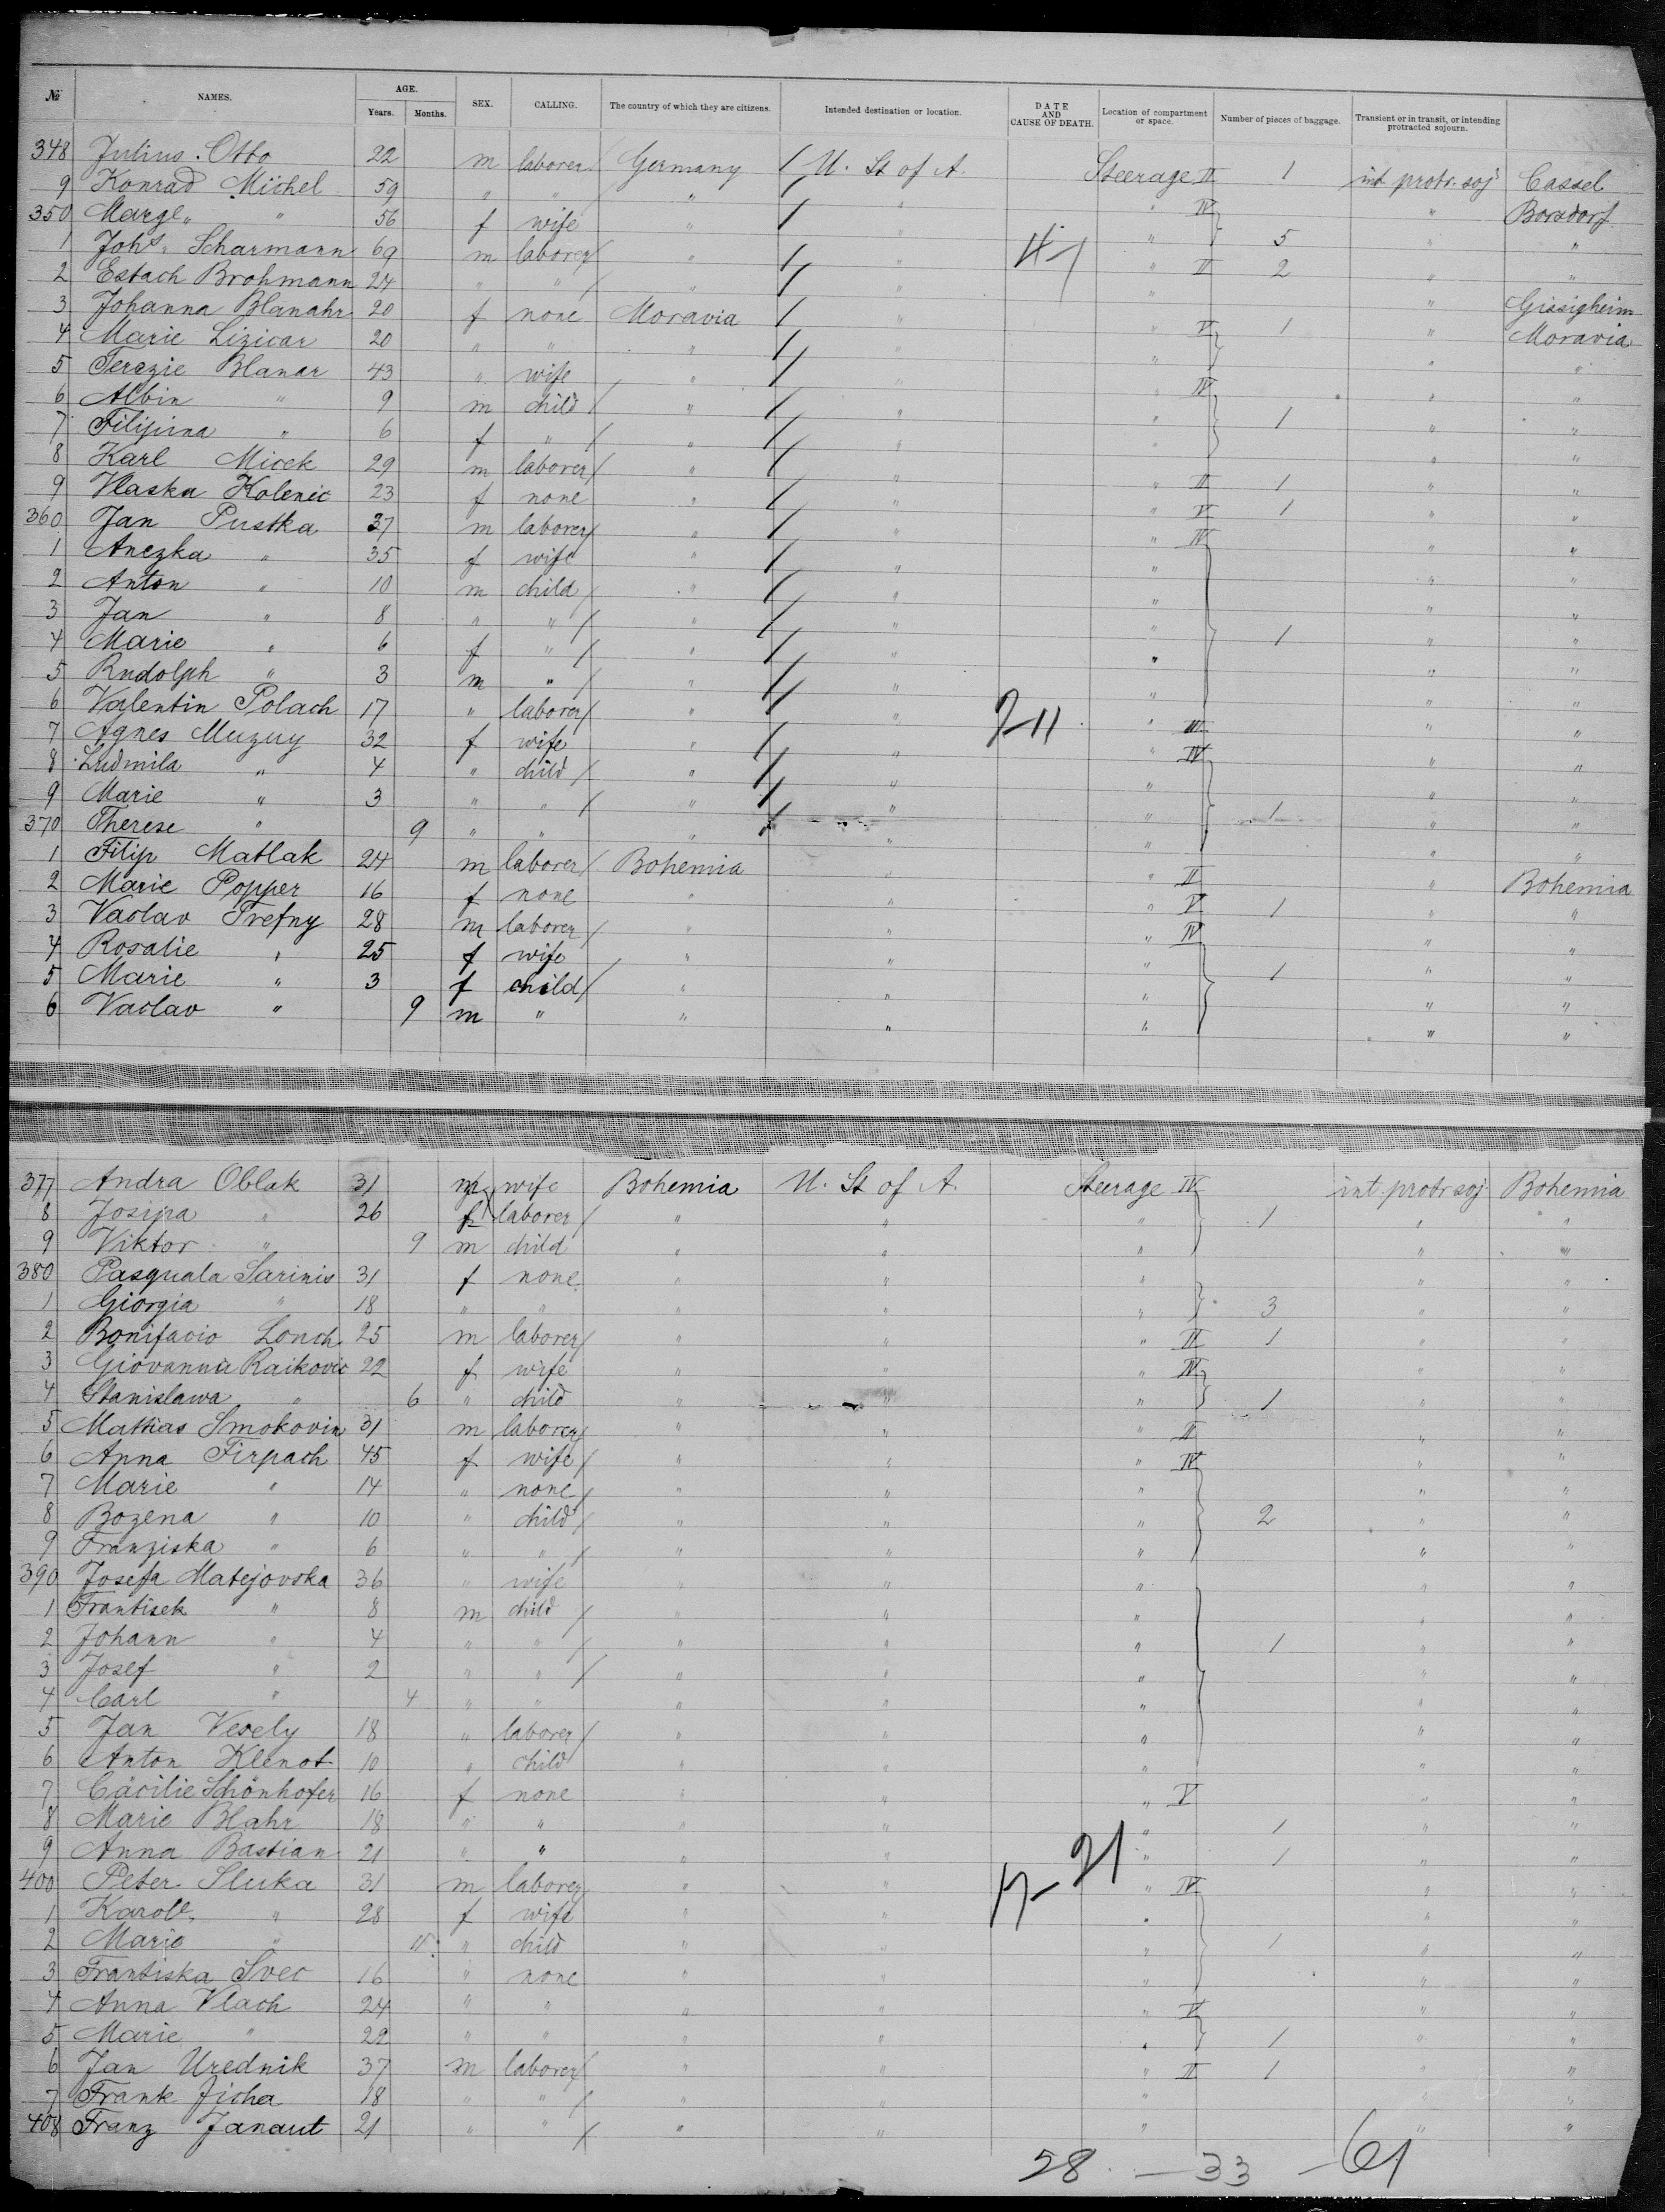 № NAMES. AGE. Years. Months. SEX. CALLING. The country of which they are citizens. Intended destination or location. DATE AND CAUSE OF DEATH. Location of compartment or space. Number of pieces of baggage. Transient or in transit, or intending protracted sojourn.
348 Julius Otto 22 m laborer Germany U. St of A. Steerage II 1 int protr. soj Cassel
9 Konrad Michel 59 " " " " " IV " Borsdorf
350 Marg " 56 f wife " " " 5 " "
1 Scharmann 69 m laborer " " " II 2 " "
2 Estach Brohmann 24 " " " " " " Gissigheim
3 Johanna Blanahr 20 f none Moravia " " V 1 " Moravia
4 Marie Lizicar 20 " " " " " " "
5 Terezie Blanar 43 " wife " " " IV " "
6 Albin " 9 m child " " " 1 " "
7 Filipina " 6 f " " " " " "
8 Karl Micek 29 m laborer " " " II 1 " "
9 Vlaska Kolenic 23 f none " " " V 1 " "
360 Jan Pustka 37 m laborer " " " IV " "
1 Anezka " 35 f wife " " " " "
2 Anton " 10 m child " " " " "
3 Jan " 8 " " " " " 1 " "
4 Marie " 6 f " " " " " "
5 Rudolph " 3 m " " " " " "
6 Valentin Polach 17 " laborer " " " III " "
7 Agnes Muzuy 32 f wife " " " IV " "
8 Ludmila " 4 " child " " " " "
9 Marie " 3 " " " " " 1 " "
370 Therese " 9 " " " " " " "
1 Filip Matlak 24 m laborer Bohemia " " II " Bohemia
2 Marie Popper 16 f none " " " V 1 " "
3 Vaclav Trefny 28 m laborer " " " IV " "
4 Rosalie " 25 f wife " " " 1 " "
5 Marie " 3 f child " " " " "
6 Vaclav " 9 m " " " " " "
377 Andra Oblak 31 m wife Bohemia U. St of A. Steerage IV int protr soj Bohemia
8 Josipa " 26 f laborer " " " 1 " "
9 Viktor " 9 m child " " " " "
380 Pasquala Sarinis 31 f none " " " " "
1 Giorgia " 18 " " " " " 3 " "
2 Bonifacio Lonch 25 m laborer " " " II 1 " "
3 Giovanna Raikovic 22 f wife " " " IV " "
4 Stanislawa " 6 " child " " " 1 " "
5 Mathias Smokovin 31 m laborer " " " II " "
6 Anna Firpach 45 f wife " " " IV " "
7 Marie " 14 " none " " " " "
8 Bozena " 10 " child " " " 2 " "
9 Franziska " 6 " " " " " " "
390 Josefa Matejovska 36 " wife " " " " "
1 Frantisek " 8 m child " " " " "
2 Johann " 4 " " " " " 1 " "
3 Josef " 2 " " " " " " "
4 Carl " 4 " " " " " " "
5 Jan Vesely 18 " laborer " " " " "
6 Anton Klenot 10 " child " " " " "
7 Cäcilie Schönhofer 16 f none " " " V " "
8 Marie Blahr 18 " " " " " 1 " "
9 Anna Bastian 21 " " " " " 1 " "
400 Peter Sluka 31 m laborer " " " IV " "
1 " 28 f wife " " " " "
2 Marie " 11 " child " " " 1 " "
3 Frantiska Svec 16 " none " " " " "
4 Anna Vlach 24 " " " " " V " "
5 Marie " 22 " " " " " 1 " "
6 Jan Urednik 37 m laborer " " " II 1 " "
7 Frank Jicha 18 " " " " " " "
408 Franz Janaut 21 " " " " " " "
58 - 33 - 61